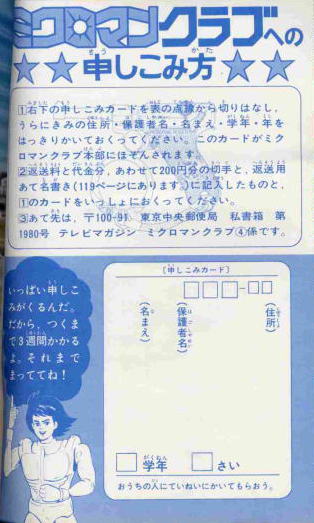 ミクロマンクラブへの
★★申しこみ方★★
①右下の申しこみカードを表の点線から切りはなし、
うらにきみの住所・保護者名・名まえ・学年・年を
はっきりかいておくってください。このカードがミク
ロマンクラブ本部にほぞんされます。
②返送料と代金分、あわせて200円分の切手と、返送用
あて名書き(119ページにあります。)に記入したものと、
①のカードをいっしょにおくってください。
③あて先は、〒100-91 東京中央郵便局 私書箱 第
1980号 テレビマガジン ミクロマンクラブ④係です。
いっぱい申しこ
みがくるんだ。
だから、つくま
で3週間かかる
よ。それまで
まっててね!
〔申しこみカード〕
□□□-□□
(住所)
(保護者名)
(名まえ)
□学年 □さい
おうちの人にていねいにかいてもらおう。